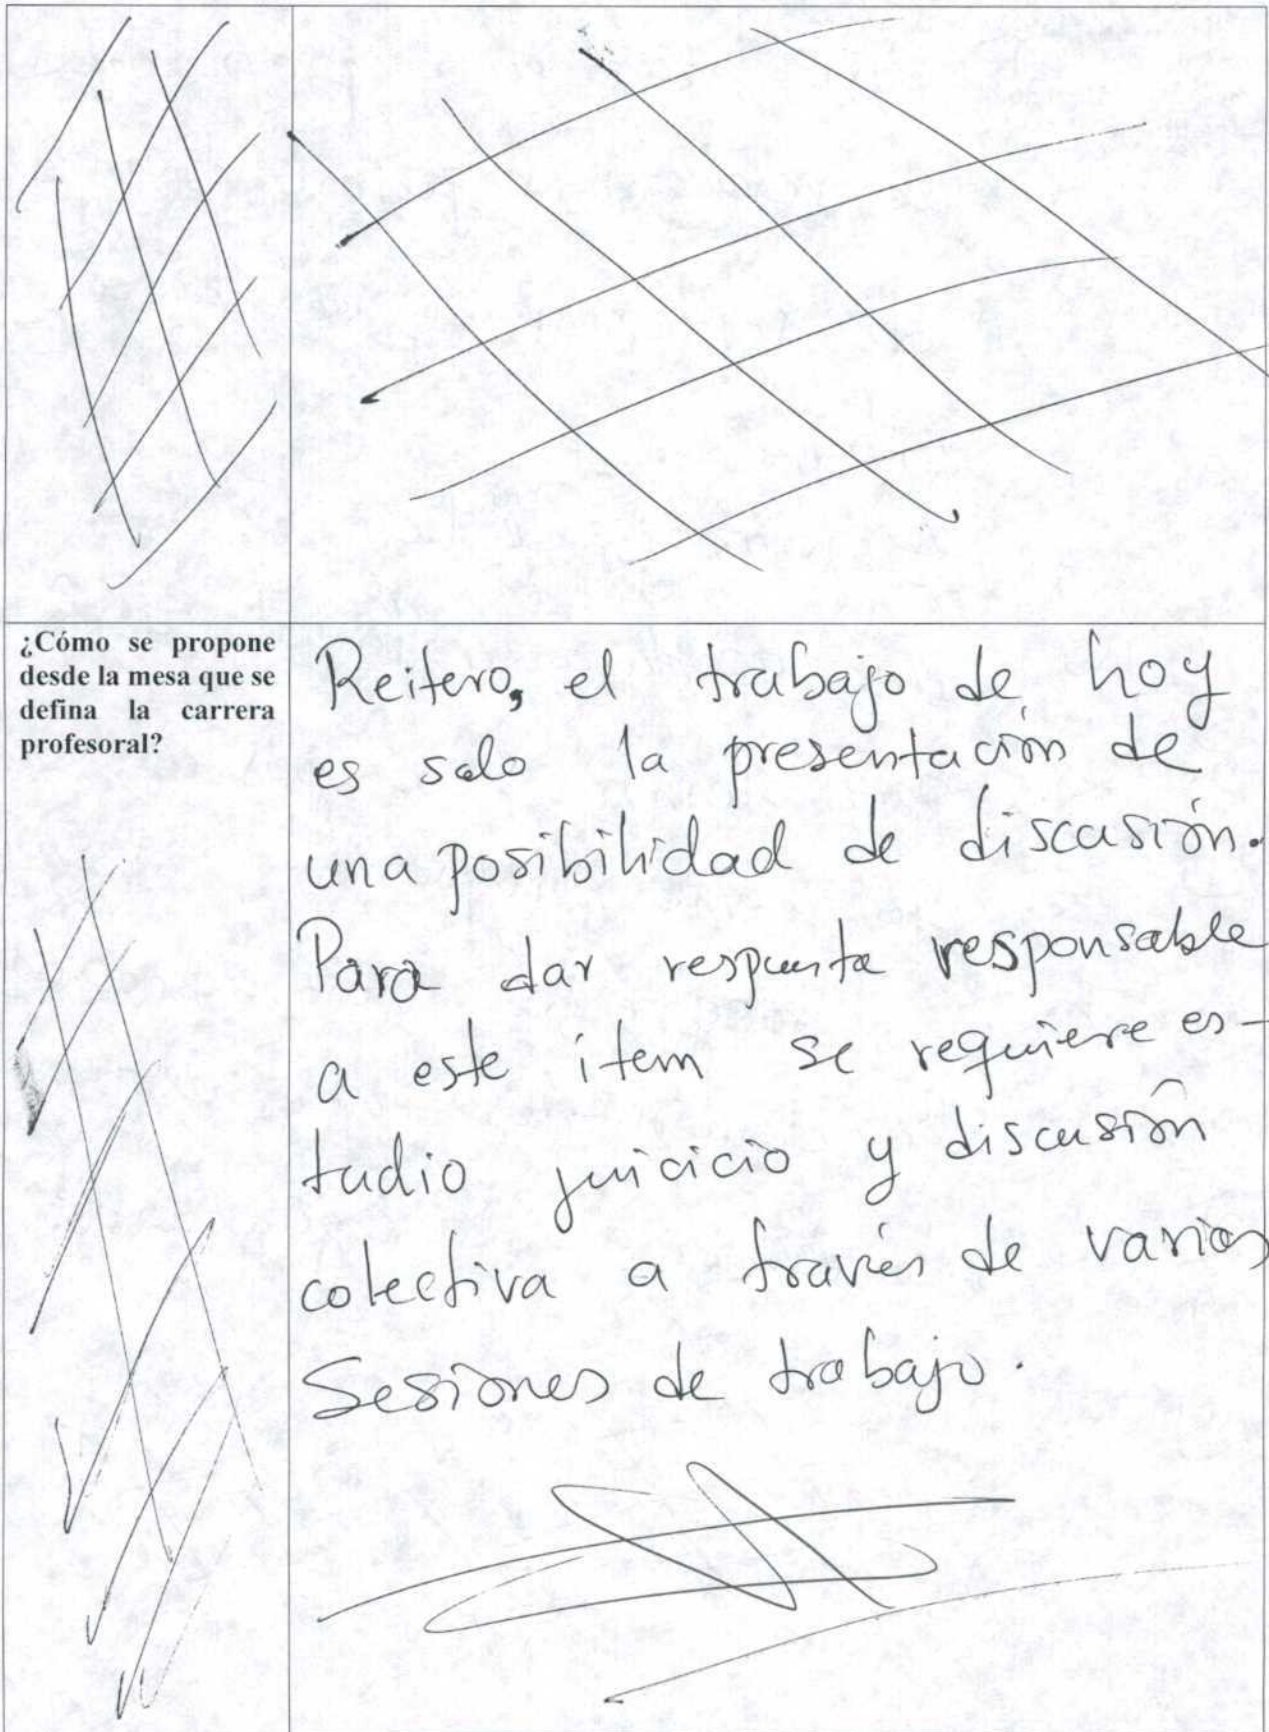 ¿Cómo se propone
desde la mesa que se
defina la carrera
profesoral?
Reitero, el trabajo de hoy
es solo la presentación de
una posibilidad de discusión.
Para dar respuesta responsable
a este item se requiere es-
tudio juicicio y discusión
colectiva a través de varias
Sesiones de trabajo.